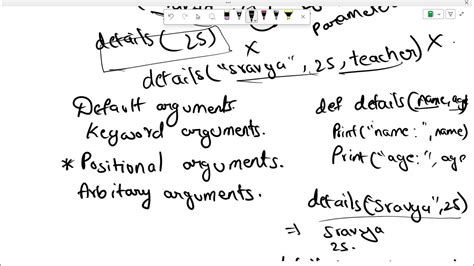 paramete
details (25)
X
details("sravya", 25, teacher) X.
Default arguments
Keyword arguments.
* Positional arguments.
Arbitary arguments.
def details(name, age
Print("name:", name)
Print("age:", age
details("sravya", 25)
⇒ sravya
25.